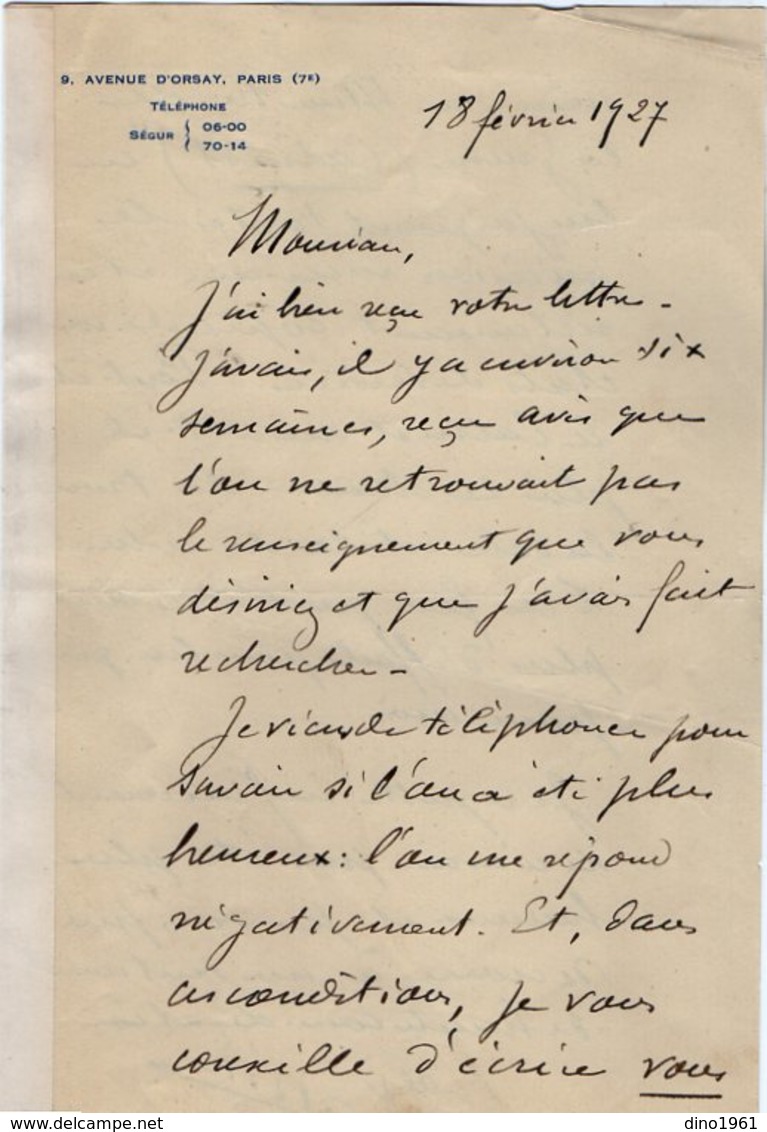 9, AVENUE D'ORSAY, PARIS (7E)
TÉLÉPHONE
SÉGUR { 06-00
70-14
18 février 1927
Monsieur,
J'ai bien reçu votre lettre -
J'avais, il y a environ six
semaines, reçu avis que
l'on ne retrouvait pas
le renseignement que vous
désiriez et que j'avais fait
rechercher -
Je viens de téléphoner pour
savoir si l'on a été plus
heureux : l'on me répond
négativement. Et, dans
ces conditions, je vous
conseille d'écrire vous
delcampe.net
dino1961